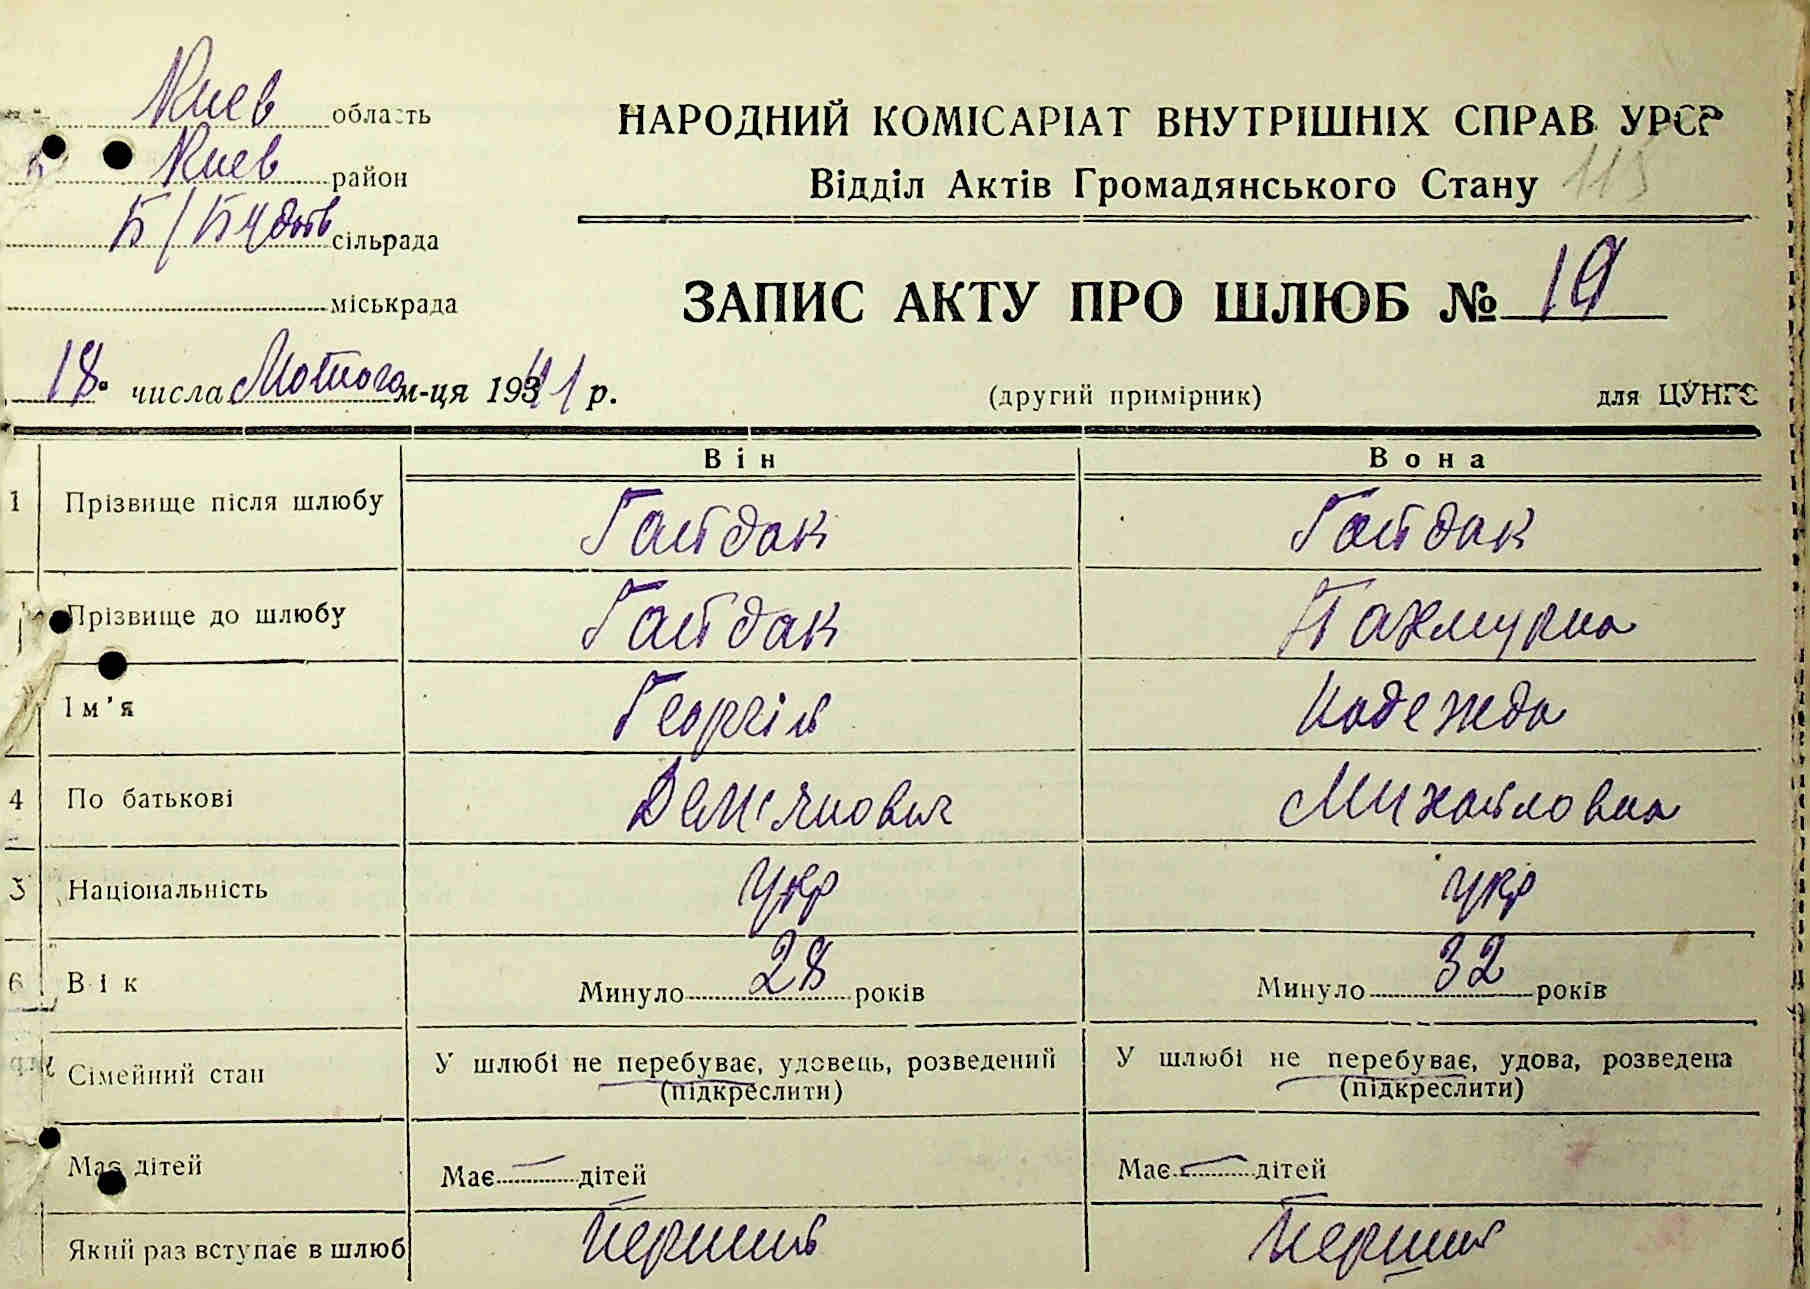 Киев область
Киев район
Б/Будов сільрада
міськрада
НАРОДНИЙ КОМІСАРІАТ ВНУТРІШНІХ СПРАВ УРСР
Відділ Актів Громадянського Стану
115
ЗАПИС АКТУ ПРО ШЛЮБ № 19
18 числа Лютого м-ця 1941 р.
(другий примірник)
для ЦУНГО
Він Вона
1 Прізвище після шлюбу Гайдак Гайдак
Прізвище до шлюбу Гайдак Пахмурна
Ім'я Георгій Надежда
4 По батькові Дем'янович Михайловна
5 Національність Укр укр
6 Вік Минуло 28 років Минуло 32 років
Сімейний стан У шлюбі не перебуває, удовець, розведений У шлюбі не перебуває, удова, розведена
(підкреслити) (підкреслити)
Має дітей Має — дітей Має — дітей
Який раз вступає в шлюб Перший Перший